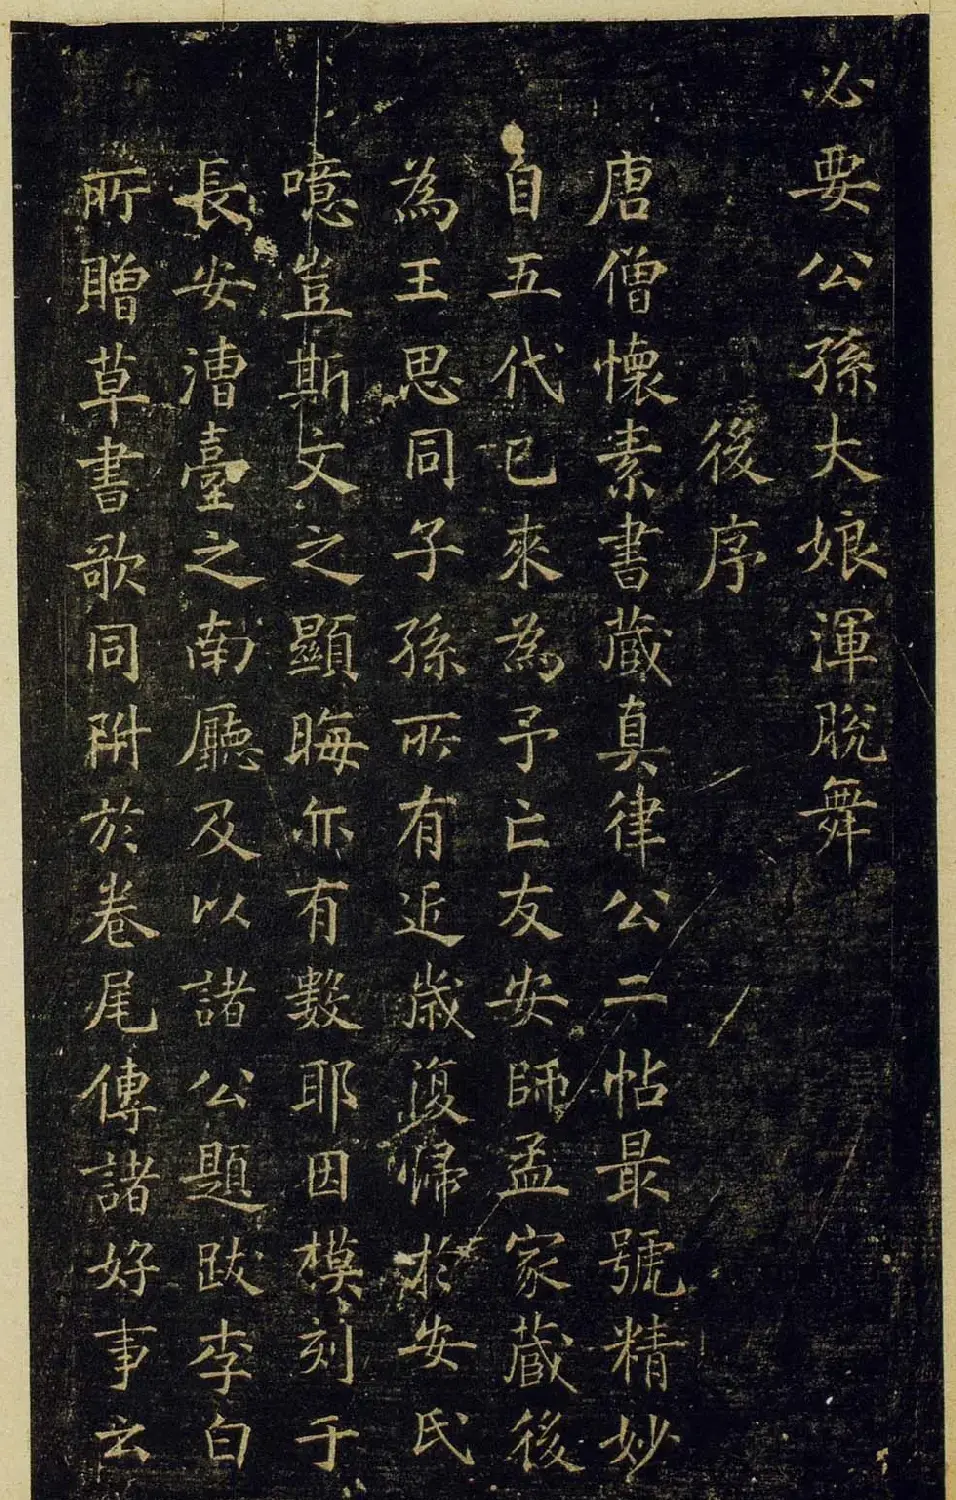 必要公孫大娘渾脫舞
後序
唐僧懷素書藏真律公二帖最號精妙
自五代已來為予亡友安師孟家藏後
為王思同子孫所有近歲復歸於安氏
噫豈斯文之顯晦亦有數耶因模刻于
長安漕臺之南廳及以諸公題跋李白
所贈草書歌同附於卷尾傳諸好事云